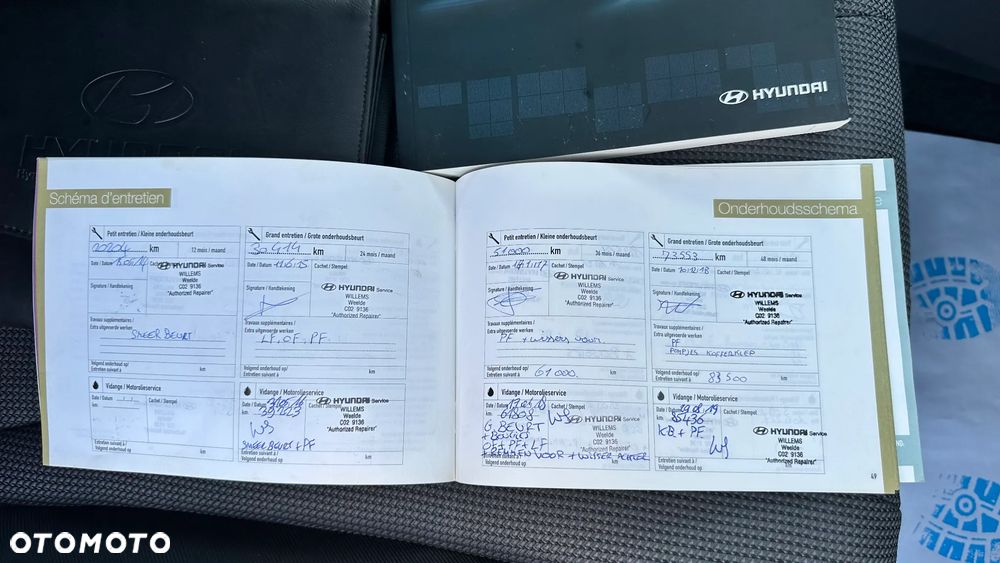 HYUNDAI
Schéma d'entretien
Petit entretien / Kleine onderhoudsbeurt
20204 km
12 mois / maand
Date / Datum
HYUNDAI Service
WILLEMS
Weelde
C02 9136
"Authorized Repairer"
Signature / Handtekening
Travaux supplémentaires /
Extra uitgevoerde werken
SMEERBEURT
Volgend onderhoud op/
Entretien suivant à
km
Grand entretien / Grote onderhoudsbeurt
30.414 km
24 mois / maand
Date / Datum
Cachet / Stempel
HYUNDAI Service
WILLEMS
Weelde
C02 9136
"Authorized Repairer"
Signature / Handtekening
Travaux supplémentaires /
Extra uitgevoerde werken
LF, OF, PF.
Volgend onderhoud op/
Entretien suivant à
km
Vidange / Motorolieservice
Date / Datum
Cachet / Stempel
km
Entretien suivant à /
Volgend onderhoud op
km
Vidange / Motorolieservice
Cachet / Stempel
HYUNDAI Service
WILLEMS
Weelde
C02 9136
"Authorized Repairer"
SMEERBEURT + PF
Entretien suivant à /
Volgend onderhoud op
km
Onderhoudsschema
Petit entretien / Kleine onderhoudsbeurt
51.000 km
36 mois / maand
Date / Datum
Cachet / Stempel
HYUNDAI Service
WILLEMS
Weelde
C02 9136
"Authorized Repairer"
Signature / Handtekening
Travaux supplémentaires /
Extra uitgevoerde werken
PF + wissers voor
Volgend onderhoud op/
Entretien suivant à
61000. km
Grand entretien / Grote onderhoudsbeurt
73553 km
48 mois / maand
Date / Datum 20.12.18
Cachet / Stempel
HYUNDAI Service
WILLEMS
Weelde
C02 9136
"Authorized Repairer"
Signature / Handtekening
Travaux supplémentaires /
Extra uitgevoerde werken
PF
POMPJES KOFFERKLEP
Volgend onderhoud op/
Entretien suivant à
83500 km
Vidange / Motorolieservice
Cachet / Stempel
61808
HYUNDAI Service
WILLEMS
Weelde
C02 9136
"Authorized Repairer"
G. BEURT
+ BOUGIES
OF + PF + LF
+ REMMEN VOOR + WISSER ACHTER
Entretien suivant à /
Volgend onderhoud op
km
Vidange / Motorolieservice
Date / Datum
Cachet / Stempel
km 85436
KB + PF
HYUNDAI Service
WILLEMS
Weelde
C02 9136
"Authorized Repairer"
Entretien suivant à /
Volgend onderhoud op
km
49
OTOMOTO